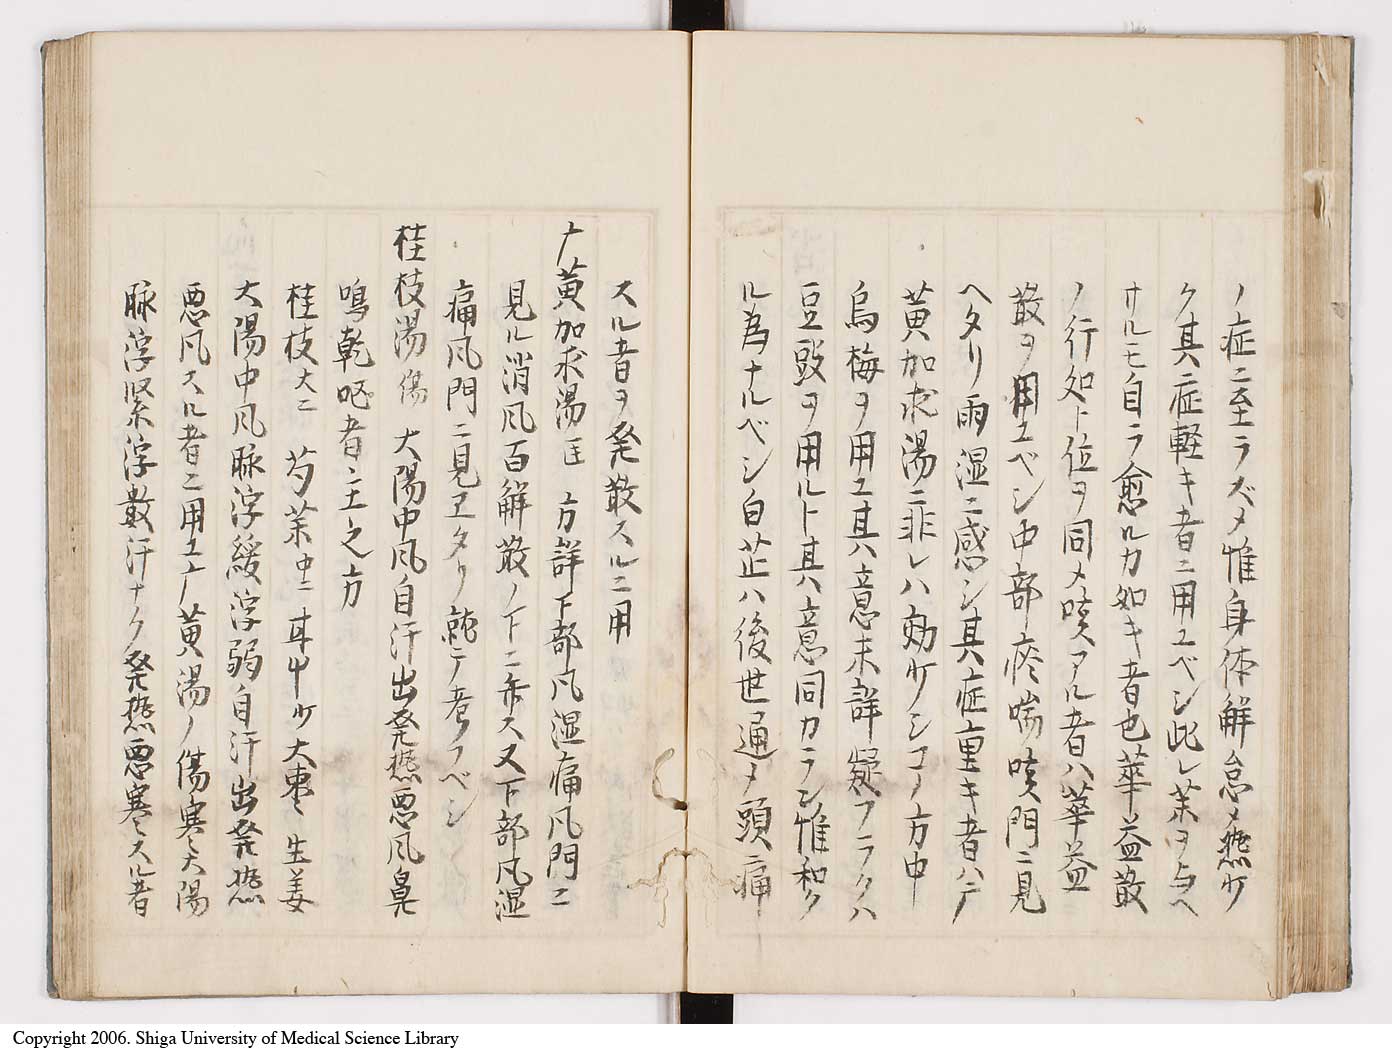 ノ症ニ至ラズメ惟身体解怠メ熱ケ
ク其症軽キ者ニ用ユベシ此レ薬ヲ与ヘ
サルモ自ラ愈ルカ如キ者也華益散
ノ行如ト位ヲ同メ咳アル者ハ華益
散ヲ用ユベシ中部痰喘咳門ニ見
ヘタリ雨湿ニ感シ其症重キ者ハ
黄加朮湯ニ非レハ効ケシコノ方中
烏梅ヲ用ユ其ハ意未詳疑フラクハ
豆豉ヲ用ルト其ハ意同カラン惟和ク
ル為ナルベシ白芷ハ後世通メ頭痛
スル者ヲ発散スルニ用
广黄加朮湯 方詳下部風湿痛風門ニ
見ル消風百解散ノ下ニ弁ス又下部風湿
痛風門ニ見エタリ就テ考フベシ
桂枝湯 傷 大陽中風自汗出発熱悪風鼻
鳴乾呕者主之方
桂枝大二 芍薬中二 甘中ケ大棗 生姜
大陽中風脉浮緩浮弱自汗出発熱
悪風スル者ニ用ユ广黄湯ノ傷寒大陽
脉浮緊浮數汗ナク発熱悪寒スル者
Copyright 2006. Shiga University of Medical Science Library